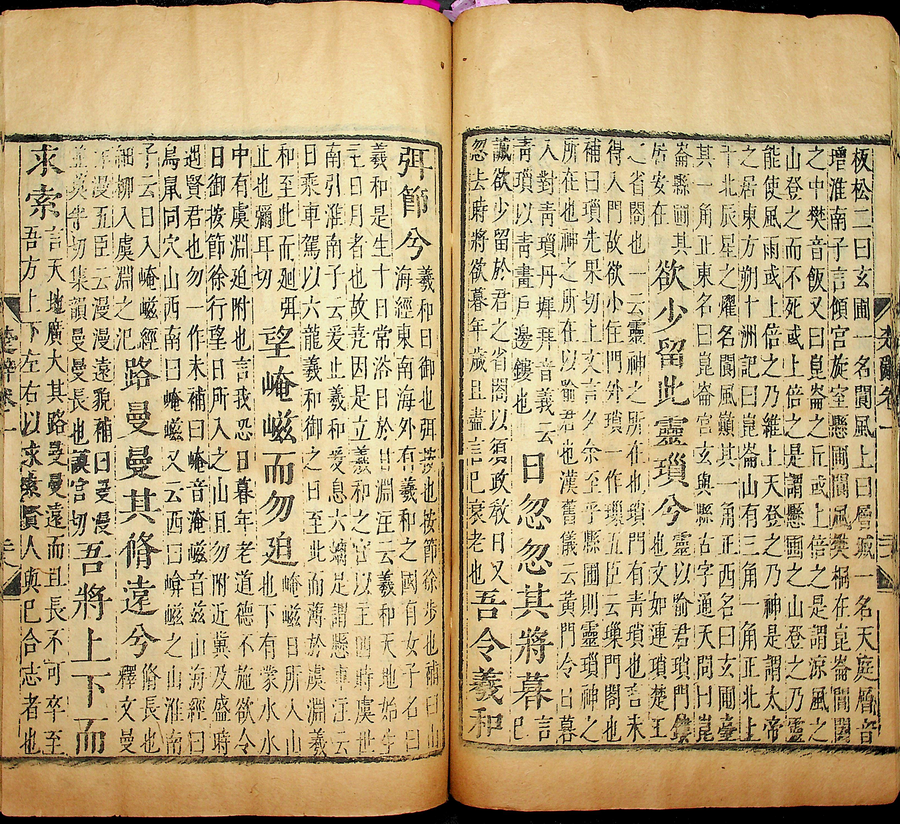 板松二曰玄圃一名閬風上曰層城一名天庭層音
增淮南子言傾宮旋室縣圃閬風樊桐在崑崙閶闔
之中樊音飯又曰崑崙之丘或上倍之是謂涼風之
山登之而不死或上倍之是謂懸圃之山登之乃靈
能使風雨或上倍之乃維上天登之乃神是謂太帝
之居東方朔十洲記曰崑崙山有三角一角正北上
干北辰星之燿名閬風巔其一角正西名曰玄圃臺
其一角正東名曰崑崙宮玄與縣古字通天問曰崑
崙縣圃其
居安在
欲少留此靈瑣兮
靈以喻君瑣門鏤
也文如連瑣楚王
之省閤也一云靈神之所在也瑣門有青瑣也言未
得入門故欲小住門外瑣一作璅五臣云璅門閤也
補曰瑣先果切上文言夕余至乎縣圃則靈瑣神之
所在也神之所在以喻君也漢舊儀云黃門令日暮
入對青瑣丹墀拜音義云
青瑣以青畫戶邊鏤也
日忽忽其將暮
言
已
誠欲少留於君之省閤以須政敎日又
忽去時將欲暮年歲且盡言已衰老也
吾令羲和
楚辭卷一
弭節兮
羲和日御也弭按也按節徐步也補曰山
海經東南海外有羲和之國有女子名曰
羲和是生十日常浴日於甘淵注云羲和天地始生
主日月者也故堯因是立羲和之官以主四時虞世
南引淮南子云爰止羲和爰息六螭是謂懸車注云
日乘車駕以六龍羲和御之日至此而薄於虞淵羲
和至此而廻弭
止也彌耳切
望崦嵫而勿迫
崦嵫日所入山
也下有蒙水水
中有虞淵迫附也言我恐日暮年老道德不施欲令
日御按節徐行望日所入之山且勿附近冀及盛時
遇賢君也勿一作未補曰崦音淹嵫音兹山海經曰
鳥鼠同穴山西南曰崦嵫又云西曰崦嵫之山淮南
子云日入崦嵫經
細柳入虞淵之汜
路曼曼其脩遠兮
脩長也
釋文曼
作漫五臣云漫漫遠貌補曰曼漫
並莫半切集韻曼曼長也謨官切
吾將上下而
求索
言天地廣大其路曼曼遠而且長不可卒至
吾方上下左右以求索賢人與已合志者也
楚辭卷一